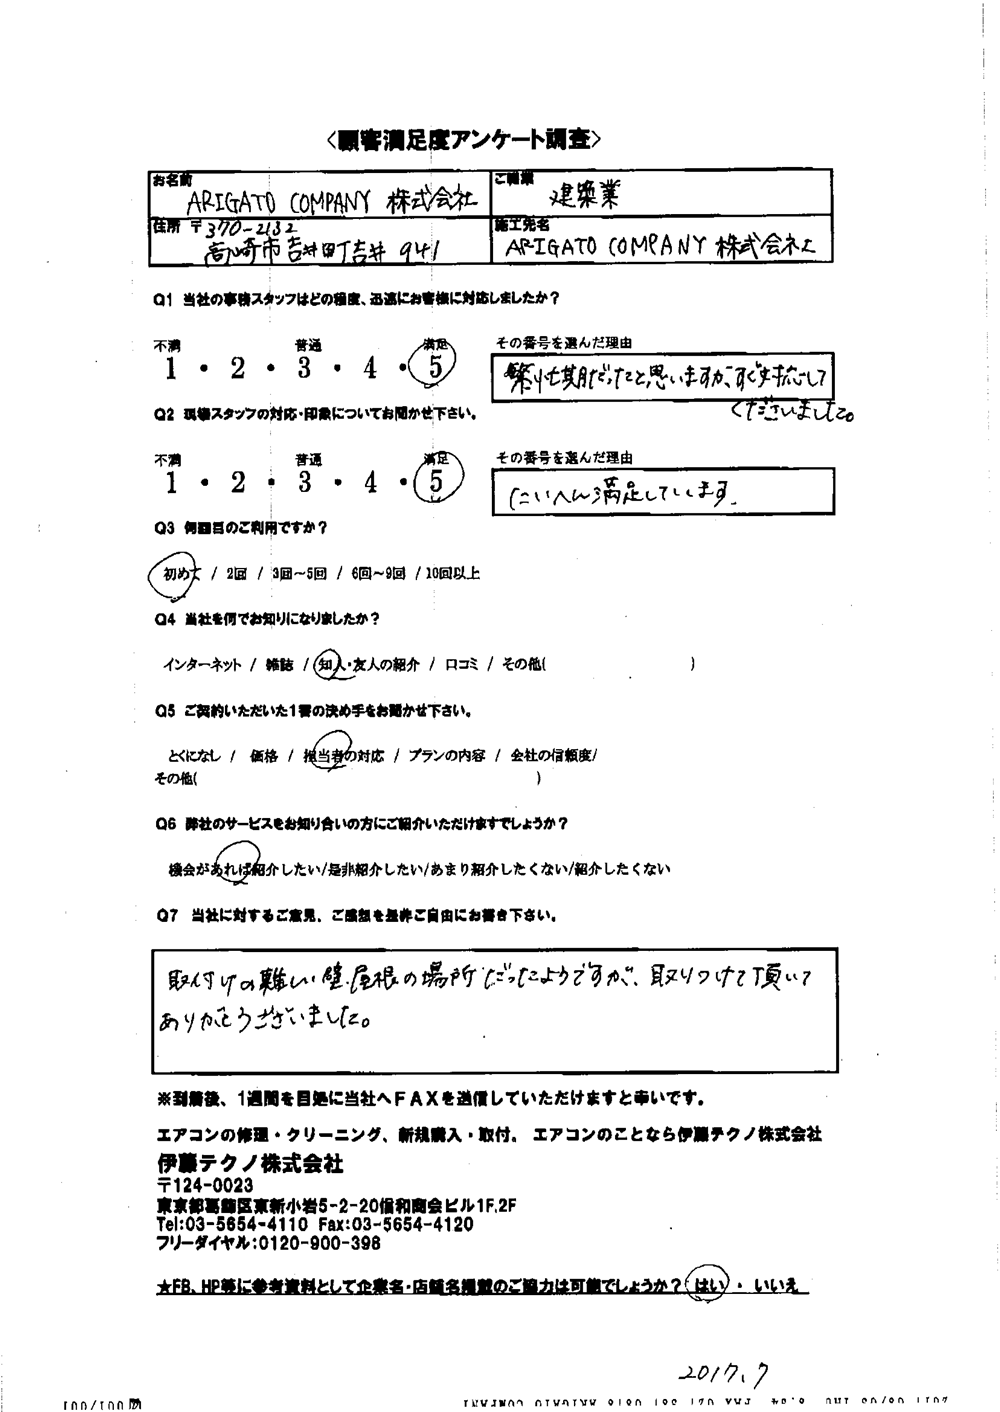 〈顧客満足度アンケート調査〉
お名前 ARIGATO COMPANY 株式会社 ご職業 建築業
住所 〒370-2132 施工先名
高崎市吉井町吉井 941 ARIGATO COMPANY 株式会社
Q1 当社の事務スタッフはどの程度、迅速にお客様に対応しましたか？
不満 普通 満足 その番号を選んだ理由
1 ・ 2 ・ 3 ・ 4 ・ 5 繁忙期だったと思いますが、すぐ対応して
くださいました。
Q2 現場スタッフの対応・印象についてお聞かせ下さい。
不満 普通 満足 その番号を選んだ理由
1 ・ 2 ・ 3 ・ 4 ・ 5 たいへん満足しています。
Q3 何回目のご利用ですか？
初めて / 2回 / 3回～5回 / 6回～9回 / 10回以上
Q4 当社を何でお知りになりましたか？
インターネット / 雑誌 / 知人・友人の紹介 / 口コミ / その他( )
Q5 ご契約いただいた1番の決め手をお聞かせ下さい。
とくになし / 価格 / 担当者の対応 / プランの内容 / 会社の信頼度/
その他( )
Q6 弊社のサービスをお知り合いの方にご紹介いただけますでしょうか？
機会があれば紹介したい/是非紹介したい/あまり紹介したくない/紹介したくない
Q7 当社に対するご意見、ご感想を是非ご自由にお書き下さい。
取付けの難しい壁、屋根の場所だったようですが、取りつけて頂いて
ありがとうございました。
※到着後、1週間を目処に当社へFAXを送信していただけますと幸いです。
エアコンの修理・クリーニング、新規購入・取付。 エアコンのことなら伊藤テクノ株式会社
伊藤テクノ株式会社
〒124-0023
東京都葛飾区東新小岩5-2-20信和商会ビル1F,2F
Tel:03-5654-4110 Fax:03-5654-4120
フリーダイヤル:0120-900-398
★FB、HP等に参考資料として企業名・店舗名掲載のご協力は可能でしょうか？ はい ・ いいえ
2017.7
001/001